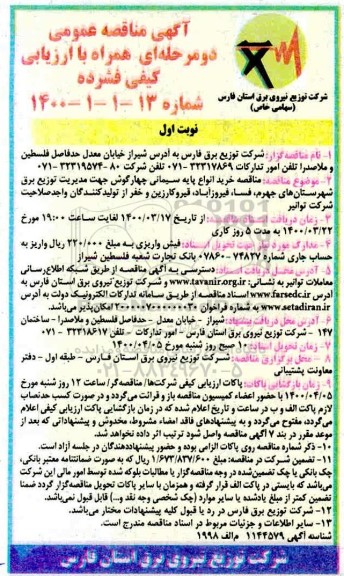 آگهی مناقصه عمومی
دومرحله‌ای همراه با ارزیابی
کیفی فشرده
شماره ۱۳-۱-۱-۱۴۰۰
شرکت توزیع نیروی برق استان فارس
(سهامی خاص)
نوبت اول
۱- نام مناقصه‌گزار: شرکت توزیع برق فارس به آدرس شیراز خیابان معدل حدفاصل فلسطین
و ملاصدرا تلفن امور تدارکات ۳۲۳۱۷۸۶۹-۰۷۱ تلفن شرکت ۸۰-۳۲۳۱۹۵۷۴-۰۷۱
۲- موضوع مناقصه: مناقصه خرید انواع پایه سیمانی چهارگوش جهت مدیریت توزیع برق
شهرستان‌های جهرم، فسا، فیروزآباد، قیروکارزین و خفر از تولیدکنندگان واجدصلاحیت
شرکت توانیر
۳- زمان دریافت اسناد مناقصه: از تاریخ ۱۴۰۰/۰۳/۱۷ لغایت ساعت ۱۹:۰۰ مورخ
۱۴۰۰/۰۳/۲۲ به مدت ۵ روز کاری
۴- مدارک مورد نیاز جهت تحویل اسناد: فیش واریزی به مبلغ ۲۲۰/۰۰۰ ریال واریز به
حساب جاری شماره ۷۴۸۲۷-۰۷۸۶۰ بانک تجارت شعبه فلسطین شیراز
۵- آدرس محل دریافت اسناد: دسترسی به آگهی مناقصه از طریق شبکه اطلاع‌رسانی
معاملات توانیر به نشانی: www.tavanir.org.ir و شرکت توزیع برق استان فارس به
آدرس www.farsedc.ir اسناد مناقصه از طریق سامانه تدارکات الکترونیک دولت به آدرس
www.setadiran.ir به شماره فراخوان امکان‌پذیر می‌باشد.
۶- آدرس محل دریافت پیشنهاد: شیراز - خیابان معدل - حدفاصل فلسطین و ملاصدرا - ساختمان
۱۴۷ - شرکت توزیع نیروی برق استان فارس - امور تدارکات - تلفن ۳۲۳۱۸۶۱۷-۰۷۱
۷- زمان تحویل اسناد: ۱۰ صبح روز شنبه مورخ ۱۴۰۰/۰۴/۰۵
۸- محل برگزاری مناقصه: شرکت توزیع نیروی برق استان فارس - طبقه اول - دفتر
معاونت پشتیبانی
۹- زمان بازگشایی پاکات: پاکات ارزیابی کیفی شرکت‌ها/ مناقصه‌گر/ ساعت ۱۲ روز شنبه مورخ
۱۴۰۰/۰۴/۰۵ با حضور اعضاء کمیسیون مناقصه باز و قرائت می‌گردد و در صورت کسب حدنصاب
لازم پاکت الف و ب در ساعت و تاریخ اعلام شده که در زمان بازگشایی پاکت ارزیابی کیفی اعلام
می‌گردد، مفتوح می‌گردد و به پیشنهادهای فاقد امضاء مشروط، مخدوش و پیشنهاداتی که بعد از
موعد مقرر در بند ۷ آگهی مناقصه واصل شود ترتیب اثر داده نخواهد شد.
۱۰- ذکر شماره مناقصه روی پاکات الزامی بوده و حضور پیشنهاددهندگان در جلسه آزاد است.
۱۱- تضمین شرکت در مناقصه: مبلغ ۱/۶۷۳/۸۳۷/۶۰۰ ریال که به صورت ضمانتنامه معتبر بانکی،
چک بانکی یا چک تضمین‌شده در وجه مناقصه‌گزار یا مطالبات بلوکه شده توسط امور مالی این شرکت
می‌باشد که بایستی در پاکت الف قرار گرفته و همزمان با سایر پاکات تحویل مناقصه‌گزار گردد ضمنا
تضمین کمتر از مبلغ یادشده یا سایر موارد (چک شخصی وجه نقد و...) قابل قبول نمی‌باشد.
۱۲- شرکت توزیع برق فارس در رد یا قبول کلیه پیشنهادات مختار می‌باشد.
۱۳- سایر اطلاعات و جزئیات مربوط در اسناد مناقصه مندرج است.
شناسه آگهی ۱۱۴۴۵۷۹ م‌الف ۱۹۹۸
شرکت توزیع نیروی برق استان فارس